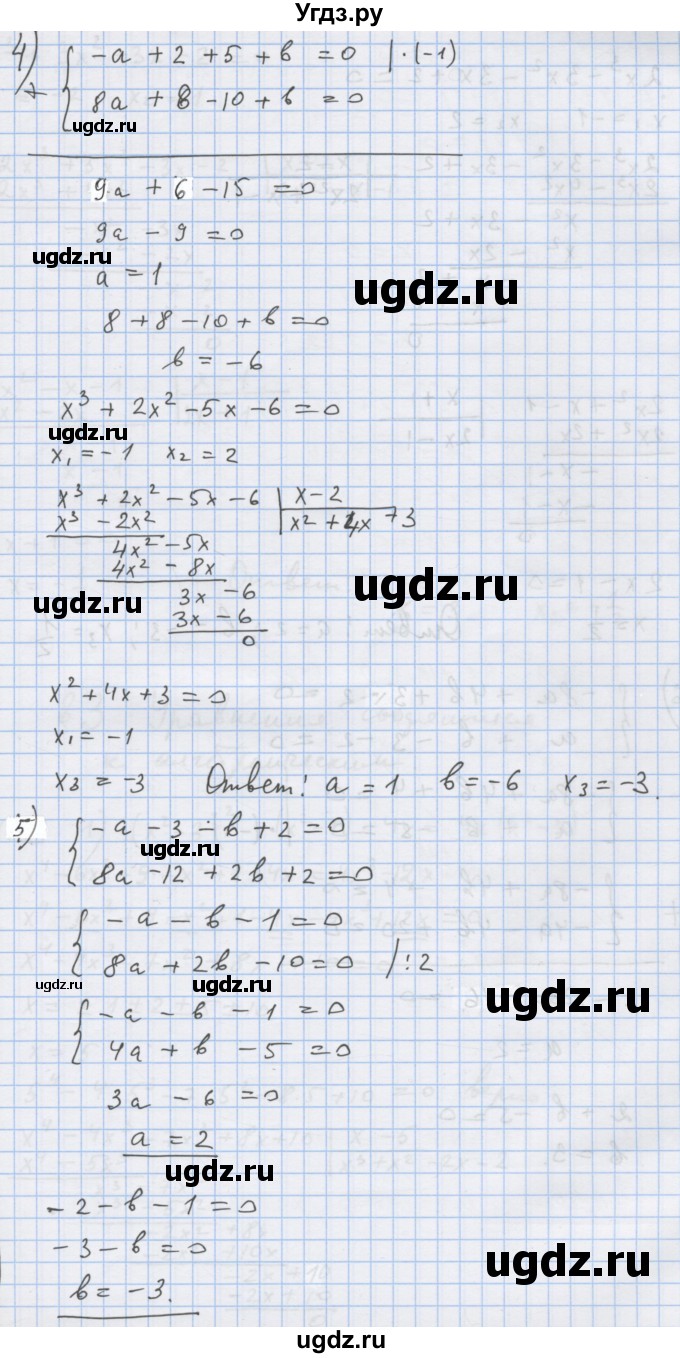 Угдз.ру
4) { -a + 2 + 5 + b = 0 | · (-1)
+ 8a + 8 - 10 + b = 0
ugdz.ru
9a + 6 - 15 = 0
9a - 9 = 0
ugdz.ru
a = 1
ugdz.ru
8 + 8 - 10 + b = 0
b = -6
x³ + 2x² - 5x - 6 = 0
ugdz.ru
x₁ = -1 x₂ = 2
x³ + 2x² - 5x - 6 | x - 2
x³ - 2x² | x² + 4x + 3
4x² - 5x
4x² - 8x
ugdz.ru
3x - 6
ugdz.ru
3x - 6
0
x² + 4x + 3 = 0
x₁ = -1
x₃ = -3 Ответ: a = 1 b = -6 x₃ = -3.
5) { -a - 3 - b + 2 = 0
ugdz.ru
8a - 12 + 2b + 2 = 0
{ -a - b - 1 = 0
8a + 2b - 10 = 0 /:2
ugdz.ru ugdz.ru
ugdz.ru
{ -a - b - 1 = 0
4a + b - 5 = 0
3a - 6 = 0
a = 2
ugdz.ru
-2 - b - 1 = 0
-3 - b = 0
ugdz.ru
b = -3.
ugdz.ru